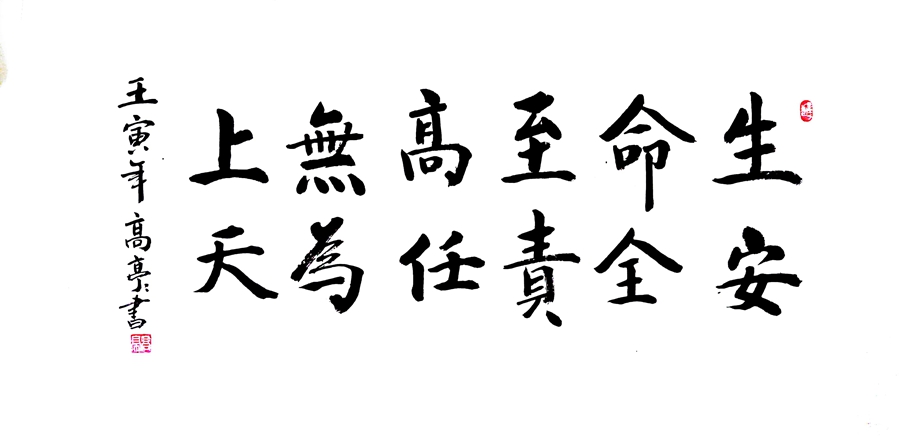 生命至高無上
安全責任為天
壬寅年高亭〻書